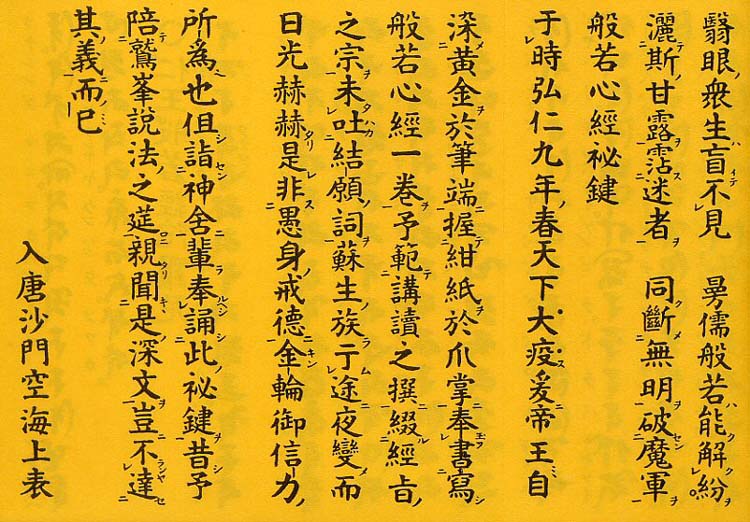 翳眼衆生盲不見　曼儒般若能解紛
灑斯甘露霑迷者　同斷無明破魔軍
般若心經祕鍵
于時弘仁九年春天下大疫爰帝王自
染黃金於筆端握紺紙於爪掌奉書寫
般若心經一卷予範講讀之撰綴經旨
之宗未吐結願詞蘇生族亍途夜變而
日光赫赫是非愚身戒德金輪御信力
所爲也但詣神舍輩奉誦此祕鍵昔予
陪鷲峯說法之莚親聞是深文豈不達
其義而已
入唐沙門空海上表